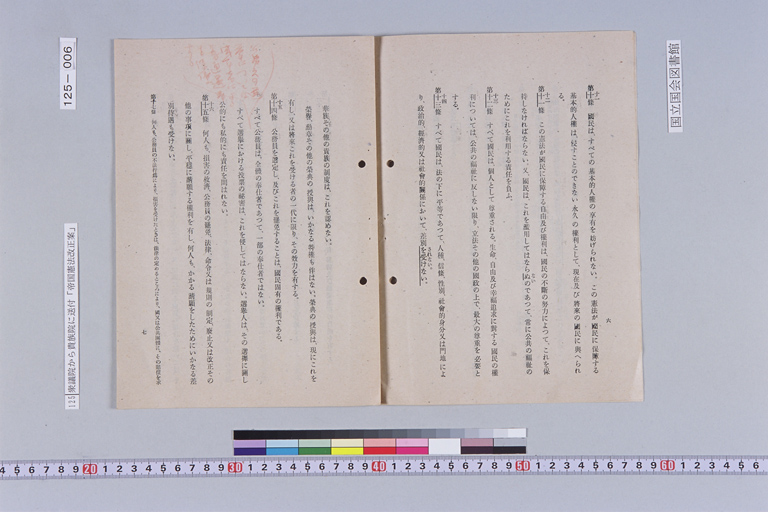 国立国会図書館
六
十一
第十條　國民は、すべての基本的人權の享有を妨げられない。この憲法が國民に保障する
基本的人權は、侵すことのできない永久の權利として、現在及び將來の國民に與へられ
る。
十二
第十一條　この憲法が國民に保障する自由及び權利は、國民の不斷の努力によつて、これを保
持しなければならない。又、國民は、これを濫用してはならぬのであつて、常に公共の福祉の
ためにこれを利用する責任を負ふ。
十三
第十二條　すべて國民は、個人として尊重される。生命、自由及び幸福追求に對する國民の權
利については、公共の福祉に反しない限り、立法その他の國政の上で、最大の尊重を必要と
する。
十四
第十三條　すべて國民は、法の下に平等であつて、人種、信條、性別、社會的身分又は門地によ
り、政治的、經濟的又は社會的關係において、差別を受けない。
されない。
華族その他の貴族の制度は、これを認めない。
榮譽、勳章その他の榮典の授與は、いかなる特權も伴はない。榮典の授與は、現にこれを
有し、又は將來これを受ける者の一代に限り、その效力を有する。
十五
第十四條　公務員を選定し、及びこれを罷免することは、國民固有の權利である。
すべて公務員は、全體の奉仕者であつて、一部の奉仕者ではない。
すべて選擧における投票の祕密は、これを侵してはならない。選擧人は、その選擇に關し
公的にも私的にも責任を問はれない。
十六
第十五條　何人も、損害の救濟、公務員の罷免、法律、命令又は規則の制定、廢止又は改正その
他の事項に關し、平穩に請願する權利を有し、何人も、かかる請願をしたためにいかなる差
別待遇も受けない。
第十七條　何人も、公務員の不法行爲により、損害を受けたときは、法律の定めるところにより、國又は公共團體に、その賠償を求
七
125－006
125衆議院から貴族院に送付「帝国憲法改正案」